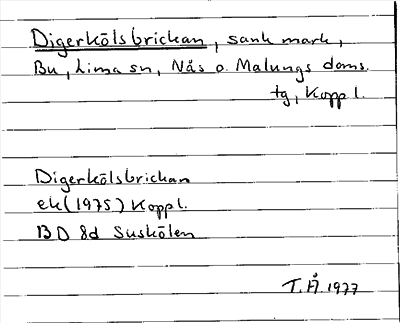 Digerkölsbrickan, sank mark,
Bu, Lima sn, Nås o. Malungs doms.
tg, Kopp l.
Digerkölsbrickan
ek (1975) Koppl.
BD 8d Suskölen
T.Å. 1977